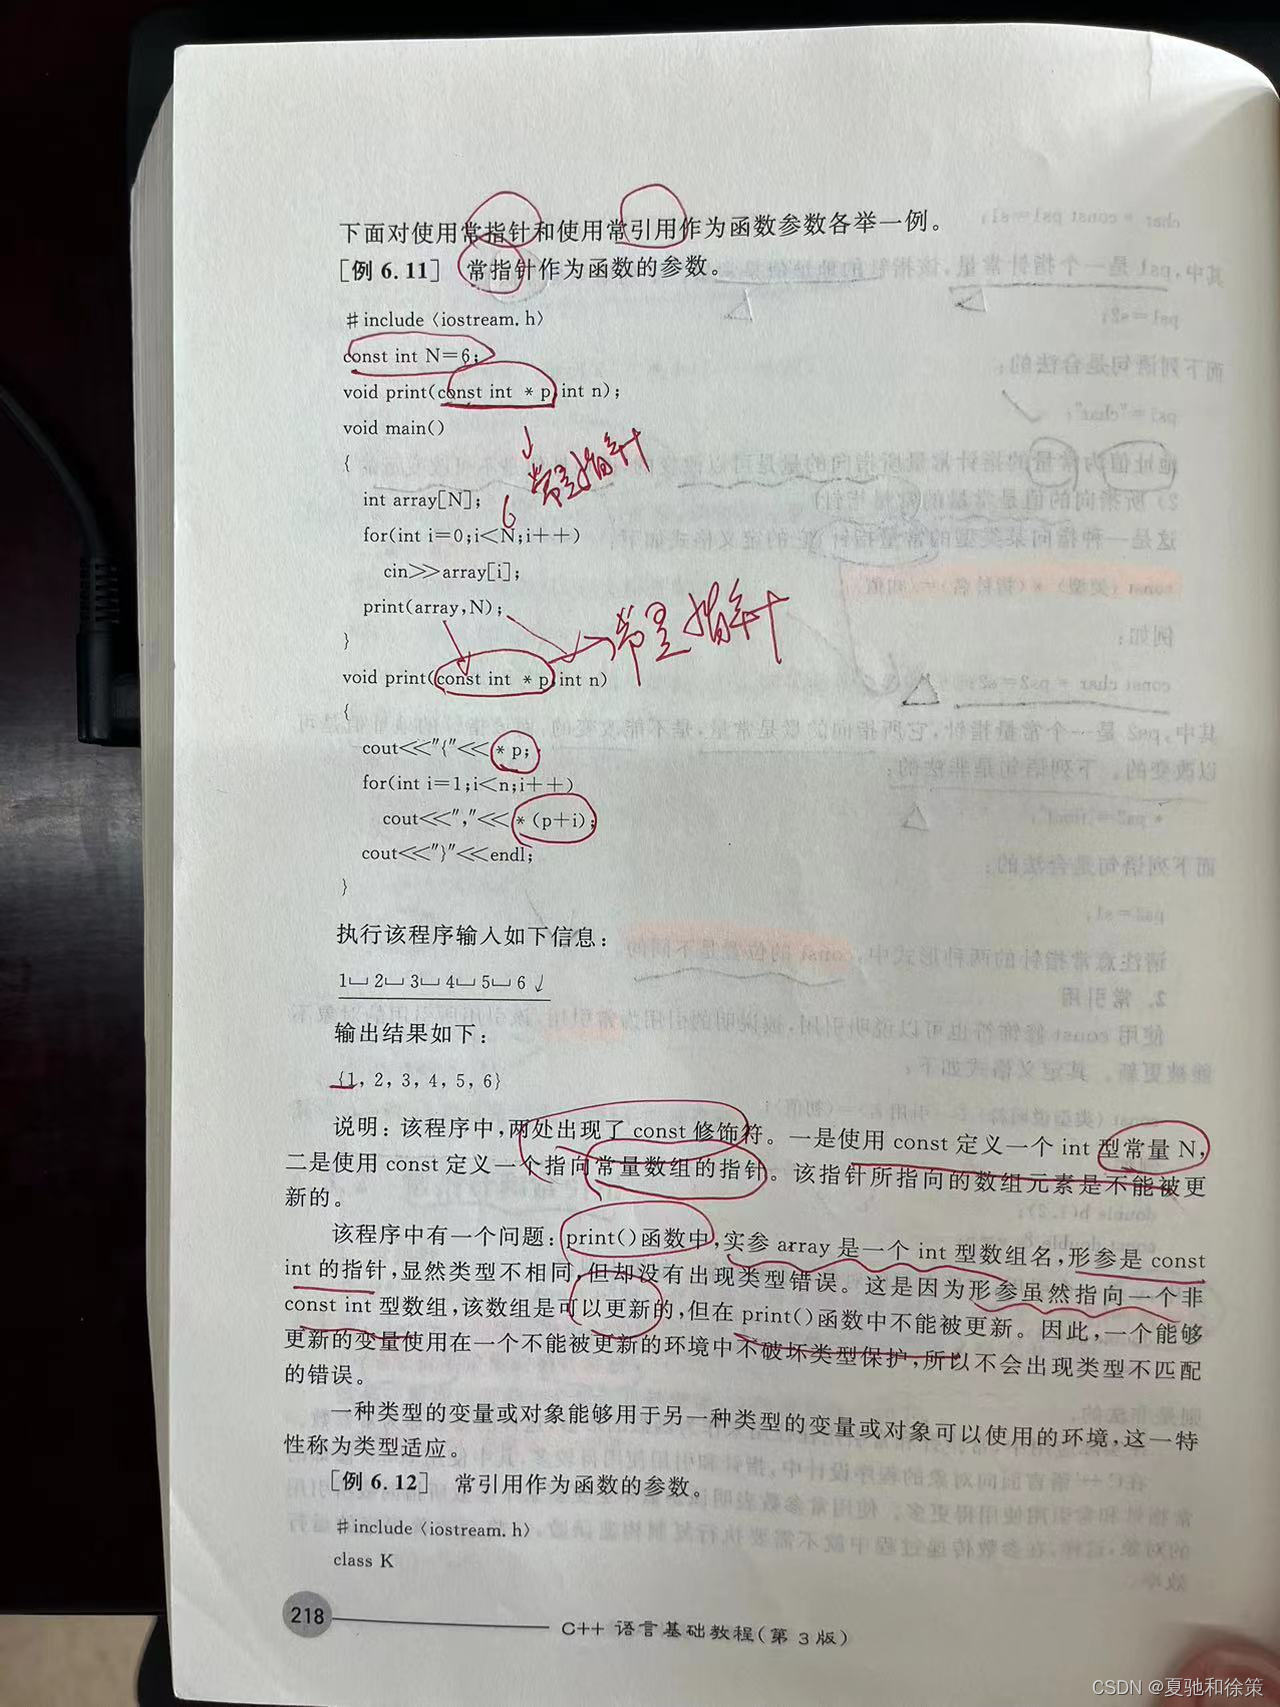 下面对使用常指针和使用常引用作为函数参数各举一例。
[例 6.11] 常指针作为函数的参数。
#include <iostream.h>
const int N=6;
void print(const int *p,int n);
void main()
常量指针
{
int array[N];
6
for(int i=0;i<N;i++)
cin>>array[i];
print(array,N);
常量指针
}
void print(const int *p,int n)
{
cout<<"{"<<*p;
for(int i=1;i<n;i++)
cout<<","<<*(p+i);
cout<<"}"<<endl;
}
执行该程序输入如下信息:
1␣2␣3␣4␣5␣6↙
输出结果如下:
{1,2,3,4,5,6}
说明:该程序中,两处出现了 const 修饰符。一是使用 const 定义一个 int 型常量 N,
二是使用 const 定义一个指向常量数组的指针。该指针所指向的数组元素是不能被更
新的。
该程序中有一个问题:print()函数中,实参 array 是一个 int 型数组名,形参是 const
int 的指针,显然类型不相同,但却没有出现类型错误。这是因为形参虽然指向一个非
const int 型数组,该数组是可以更新的,但在 print()函数中不能被更新。因此,一个能够
更新的变量使用在一个不能被更新的环境中不破坏类型保护,所以不会出现类型不匹配
的错误。
一种类型的变量或对象能够用于另一种类型的变量或对象可以使用的环境,这一特
性称为类型适应。
[例 6.12] 常引用作为函数的参数。
#include <iostream.h>
class K
218
C++ 语言基础教程(第 3 版)
CSDN @夏驰和徐策